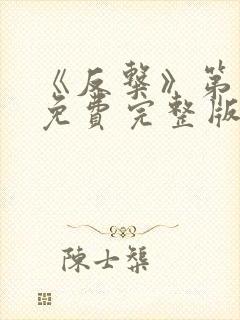 《反檕》第
免費完整版
陳士榘